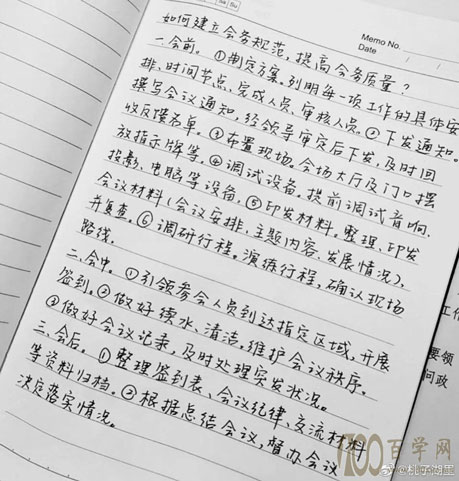 Sa Su
Memo No.
Date / /
如何建立会务规范，提高会务质量？
一、会前。①制定方案。列明每一项工作的具体安
排、时间节点、完成人员、审核人员。②下发通知。
撰写会议通知，经领导审定后下发，及时回
收反馈名单。③布置现场。会场大厅及门口摆
放指示牌等。④调试设备。提前调试音响、
投影、电脑等设备。⑤印发材料。整理、印发
会议材料（会议安排、主题内容、发展情况），
并复查。⑥调研行程。演练行程，确认现场
路线。
二、会中。①引领参会人员到达指定区域，开展
签到。②做好续水、清洁。维护会议秩序。
③做好会议记录，及时处理突发状况。
三、会后。①整理签到表、会议纪律、交流材料
等资料归档。②根据总结会议，督办会议
决定落实情况。
工作
要领
问政
100百学网
@桃子湖里